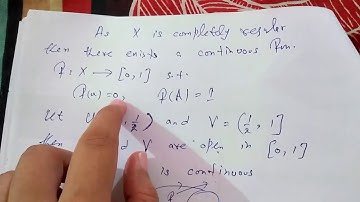 As X is completely regular
then there exists a continuous fun.
f: X → [0, 1] s.t.
f(a) = 0, f(A) = 1
Let U 1/2) and V = (1/2, 1]
then V are open in [0, 1]
is continuous